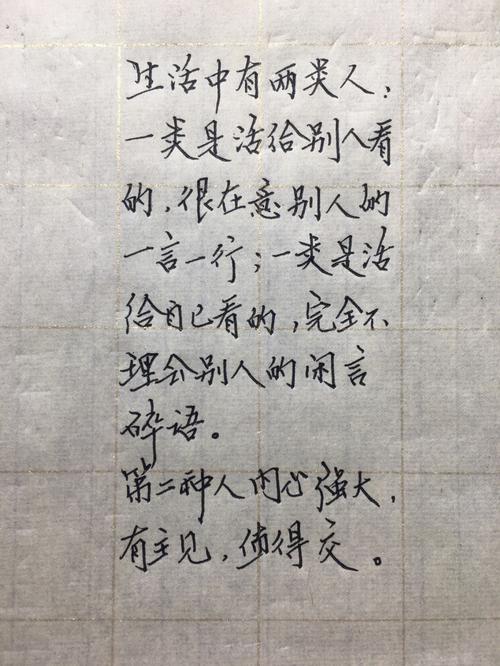 生活中有两类人：
一类是活给别人看
的，很在意别人的
一言一行；一类是活
给自己看的，完全不
理会别人的闲言
碎语。
第二种人内心强大，
有主见，值得交。